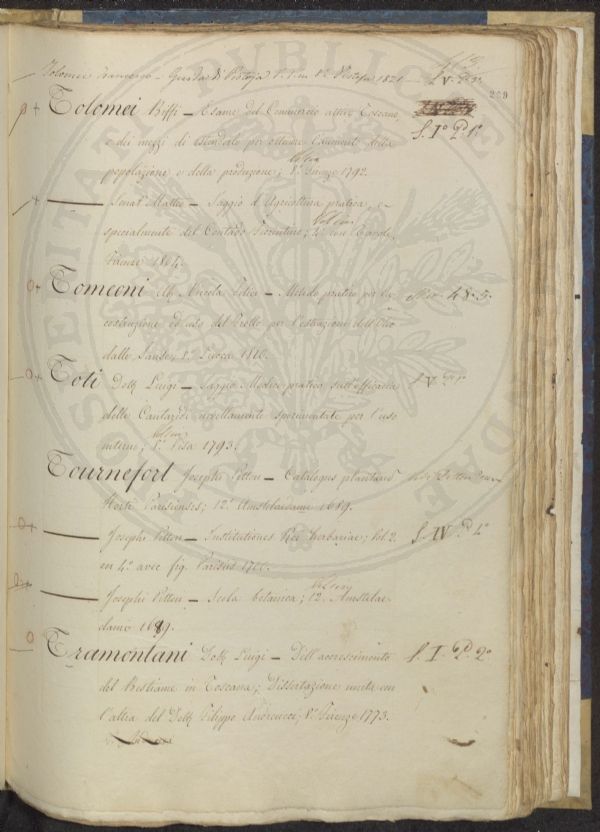 Tolomei Francesco - Guida di Pistoja 8.° Pistoja 1821 S. V. P. 3.
289
Tolomei Biffi - Esame del Commercio attivo Toscano,
e dei mezzi di estenderlo per ottenere l'aumento della
popolazione, e della produzione; 8.° Firenze 1792. S. I.° P. 1.ª
Senat. Matteo - Saggio d'Agricoltura pratica, e
specialmente del Contado Fiorentino; 4.° con Tavole
Firenze 1804.
Tomeoni Felice - Metodo pratico per la
costruzione ed uso del per l'estrazione dell'Olio
dalle Sanse; 8.° Lucca 1810.
Toti Dott. Luigi - Saggio Medico-pratico sull'efficacia
delle Cantaridi novellamente sperimentate per l'uso
interno; 8.° Pisa 1793. S. V
Tournefort Josephi Pitton - Catalogus plantarum
Horti Parisiensis; 12.° Amstelaedami 1689.
Josephi Pitton - Institutiones Rei herbariae; Vol. 2.
in 4.° avec fig. Parisiis S. IV. P. 1.ª
Josephi Pitton - Scola botanica; 12.° Amstelae
dami 1689.
Tramontani Dott. Luigi - Dell'accrescimento S. I. P. 2.ª
del Bestiame in Toscana; Dissertazione unita con
l'altra del Dott. Filippo Andreucci; 8.° Firenze 1773.